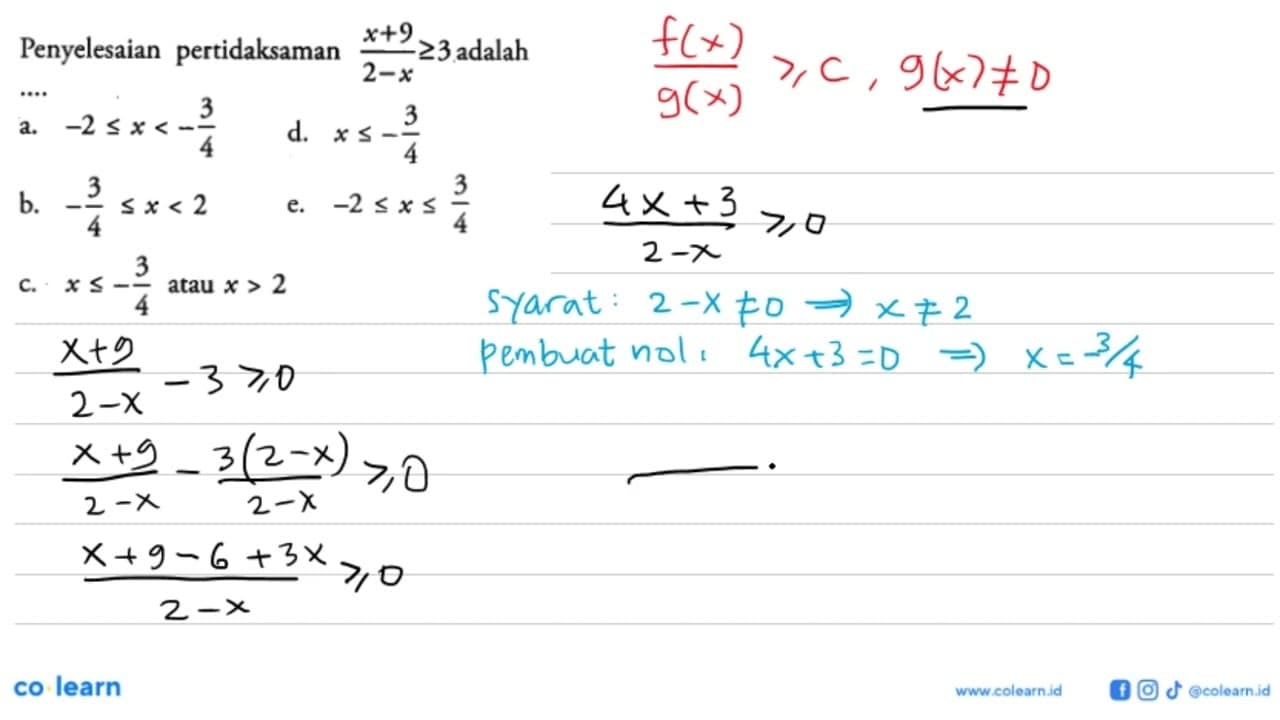 Penyelesaian pertidaksaman (x+9)/(2-x) ≥ 3 adalah
....
a. -2 ≤ x < -3/4
d. x ≤ -3/4
b. -3/4 ≤ x < 2
e. -2 ≤ x ≤ 3/4
c. x ≤ -3/4 atau x > 2
f(x)/g(x) ≥ c, g(x) ≠ 0
(x+9)/(2-x) - 3 ≥ 0
(x+9)/(2-x) - 3(2-x)/(2-x) ≥ 0
(x+9-6+3x)/(2-x) ≥ 0
(4x+3)/(2-x) ≥ 0
syarat: 2-x ≠ 0 ⇒ x ≠ 2
pembuat nol: 4x+3=0 ⇒ x = -3/4
co learn
www.colearn.id
@colearn.id